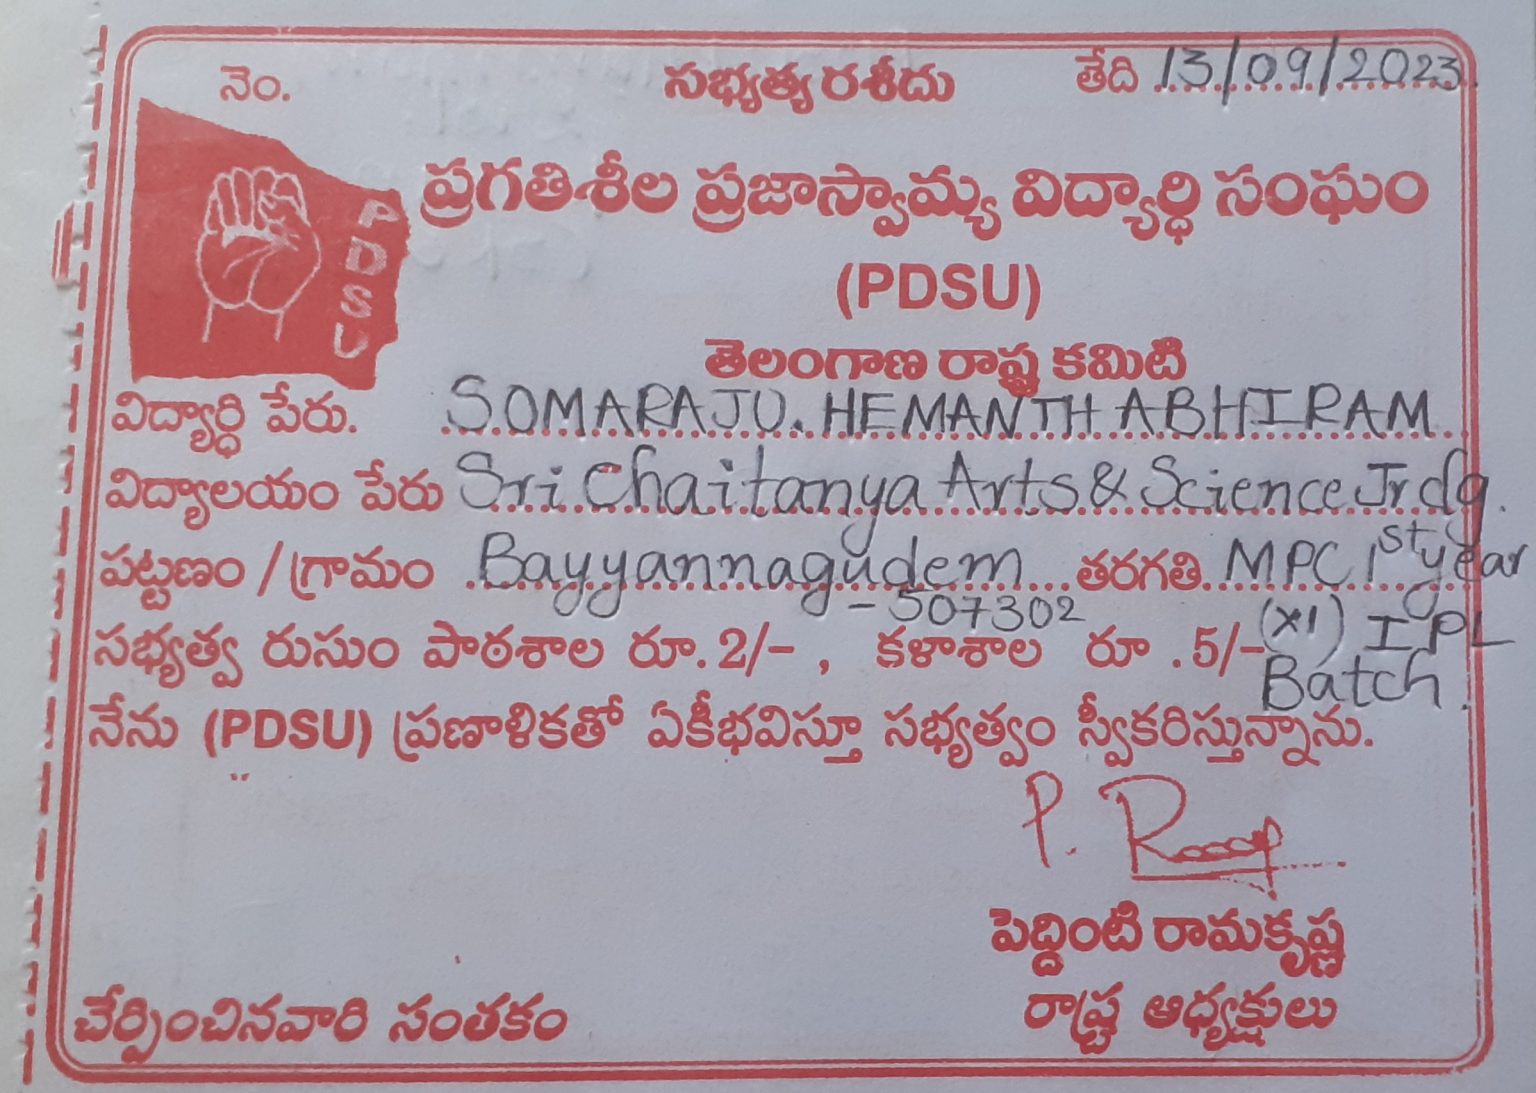 నెం. సభ్యత్య రశీదు తేది 13/09/2023
ప్రగతిశీల ప్రజాస్వామ్య విద్యార్ధి సంఘం
PDSU
(PDSU)
తెలంగాణ రాష్ట్ర కమిటి
విద్యార్ధి పేరు. SOMARAJU. HEMANTH ABHIRAM
విద్యాలయం పేరు Sri Chaitanya Arts & Science Jr clg.
పట్టణం / గ్రామం Bayyannagudem - 507302 తరగతి MPC 1st year
(XI) IPL
సభ్యత్వ రుసుం పాఠశాల రూ. 2/- , కళాశాల రూ . 5/-
Batch.
నేను (PDSU) ప్రణాళికతో ఏకీభవిస్తూ సభ్యత్వం స్వీకరిస్తున్నాను.
పెద్దింటి రామకృష్ణ
రాష్ట్ర ఆధ్యక్షులు
చేర్పించినవారి సంతకం